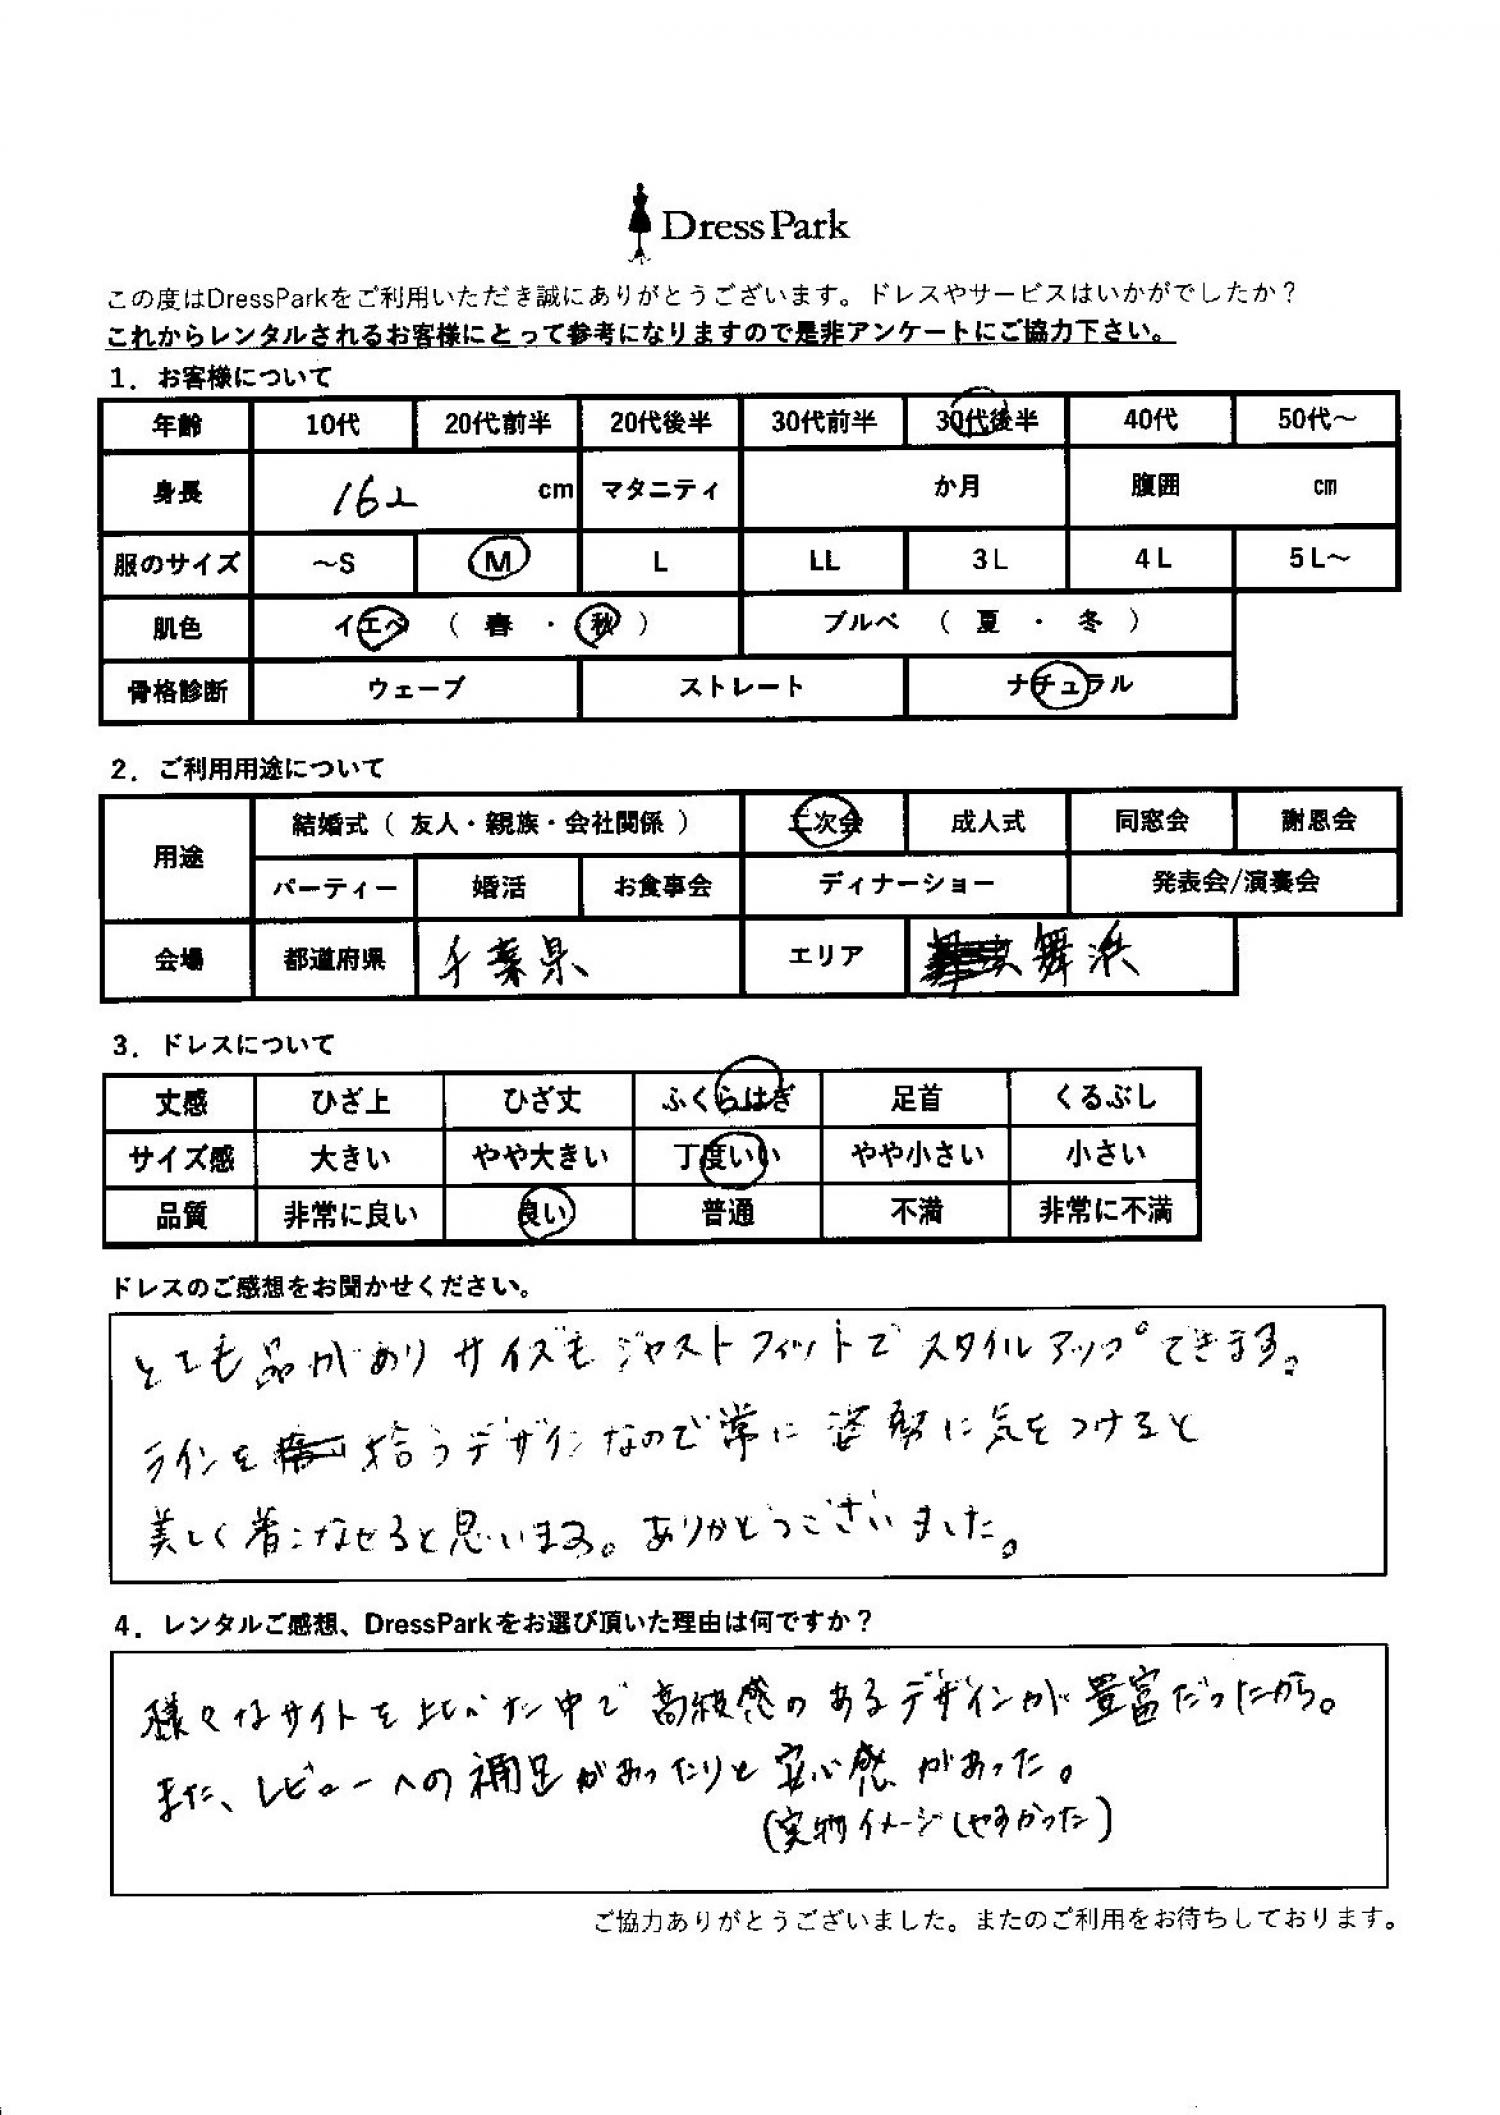 DressPark
この度はDressParkをご利用いただき誠にありがとうございます。ドレスやサービスはいかがでしたか？
これからレンタルされるお客様にとって参考になりますので是非アンケートにご協力下さい。
1．お客様について
年齢 10代 20代前半 20代後半 30代前半 30代後半 40代 50代～
身長 162 cm マタニティ か月 腹囲 cm
服のサイズ ～S M L LL 3L 4L 5L～
肌色 イエベ（ 春 ・ 秋 ） ブルベ （ 夏 ・ 冬 ）
骨格診断 ウェーブ ストレート ナチュラル
2．ご利用用途について
用途 結婚式（ 友人・親族・会社関係 ） 二次会 成人式 同窓会 謝恩会
パーティー 婚活 お食事会 ディナーショー 発表会/演奏会
会場 都道府県 千葉県 エリア 舞浜
3．ドレスについて
丈感 ひざ上 ひざ丈 ふくらはぎ 足首 くるぶし
サイズ感 大きい やや大きい 丁度いい やや小さい 小さい
品質 非常に良い 良い 普通 不満 非常に不満
ドレスのご感想をお聞かせください。
とても品がありサイズもジャストフィットでスタイルアップできます。
ラインを拾うデザインなので常に姿勢に気をつけると
美しく着こなせると思います。ありがとうございました。
4．レンタルご感想、DressParkをお選び頂いた理由は何ですか？
様々なサイトを比べた中で高級感のあるデザインが豊富だったから。
また、レビューへの補足があったりと安心感があった。
(実物イメージしやすかった)
ご協力ありがとうございました。またのご利用をお待ちしております。